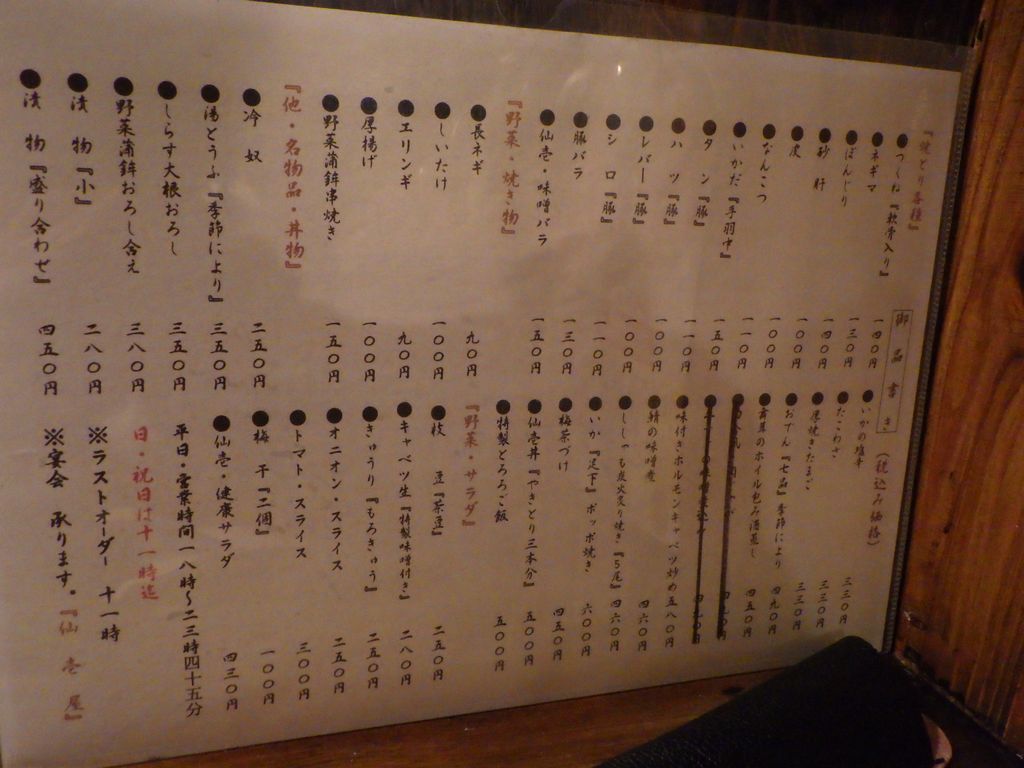 御品書き
(税込み価格)
『焼とり各種』
●つくね『軟骨入り』 一四〇円
●ネギマ 一三〇円
●ぼんじり 一四〇円
●砂肝 一〇〇円
●皮 一〇〇円
●なんこつ 一〇〇円
●いかだ『手羽中』 一一〇円
●タン『豚』 一五〇円
●ハツ『豚』 一一〇円
●レバー『豚』 一〇〇円
●シロ『豚』 一〇〇円
●豚バラ 一一〇円
●仙壱・味噌バラ 一三〇円
一五〇円
『野菜・焼き物』
●長ネギ 九〇円
●しいたけ 一〇〇円
●エリンギ 九〇円
●厚揚げ 一〇〇円
●野菜蒲鉾串焼き 一五〇円
『他・名物品・丼物』
●冷奴 二五〇円
●湯とうふ『季節により』 三五〇円
●しらす大根おろし 三五〇円
●野菜蒲鉾おろし合え 三八〇円
●漬物『小』 二八〇円
●漬物『盛り合わせ』 四五〇円
●いかの塩辛 三三〇円
●たこわさ 三三〇円
●厚焼きたまご 三三〇円
●おでん『七品』季節により 四九〇円
●舞茸のホイル包み酒蒸し 四五〇円
●味付きホルモンキャベツ炒め 五八〇円
●鯖の味噌煮 四六〇円
●ししゃも炭火炙り焼き『5尾』 四六〇円
●いか『足下』ポッポ焼き 六〇〇円
●梅茶づけ 四五〇円
●仙壱丼『やきとり三本分』 五〇〇円
●特製とろろご飯 五〇〇円
『野菜・サラダ』
●枝豆『茶豆』 二五〇円
●キャベツ生『特製味噌付き』 二八〇円
●きゅうり『もろきゅう』 二五〇円
●オニオン・スライス 二五〇円
●トマト・スライス 三〇〇円
●梅干『二個』 一〇〇円
●仙壱・健康サラダ 四三〇円
平日・営業時間一八時～二三時四十五分
日・祝日は十一時迄
※ラストオーダー 十一時
※宴会 承ります。『仙壱屋』